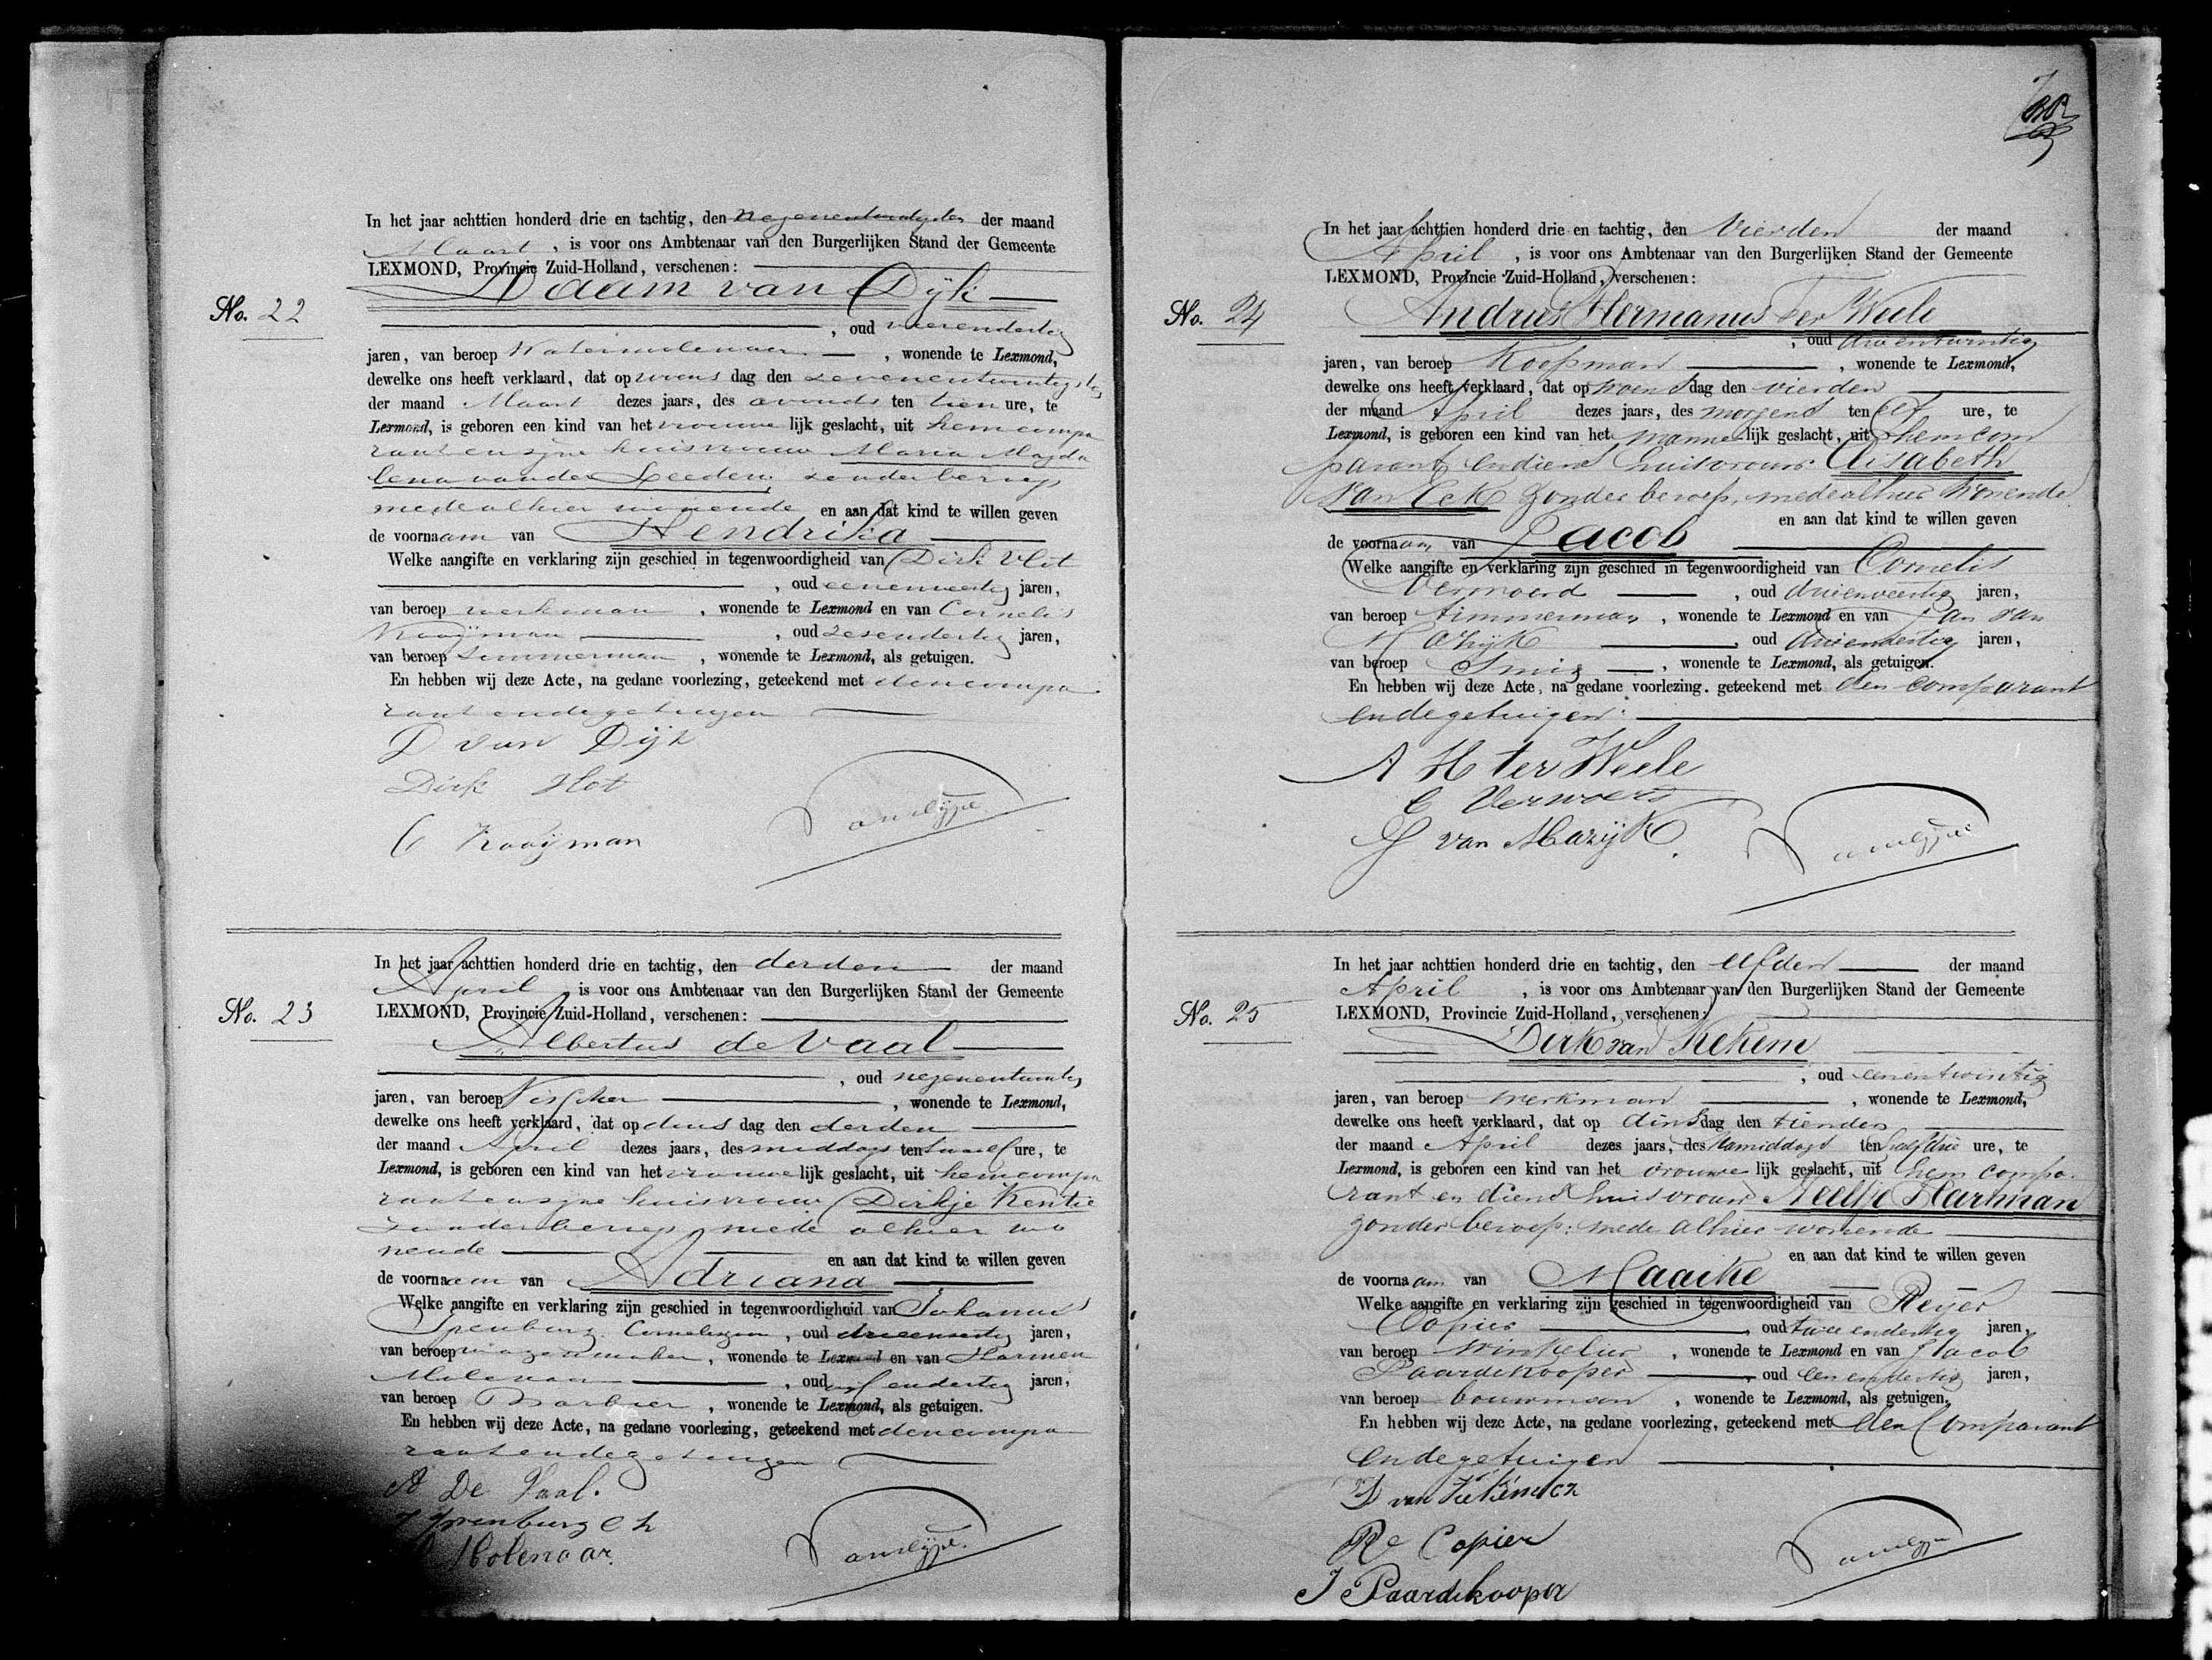 In het jaar achttien honderd drie en tachtig, den negenentwintigsten der maand
Maart, is voor ons Ambtenaar van den Burgerlijken Stand der Gemeente
LEXMOND, Provincie Zuid-Holland, verschenen:
Daam van Dijk
No. 22
, oud vierendertig
jaren, van beroep Watermolenaar, wonende te Lexmond,
dewelke ons heeft verklaard, dat op woens dag den zevenentwintigsten
der maand Maart dezes jaars, des avonds ten tien ure, te
Lexmond, is geboren een kind van het vrouwelijk geslacht, uit hem compa
rant en zijne huisvrouw Maria Magda
lena van der Leeden, zonder beroep
mede alhier wonende en aan dat kind te willen geven
de voornaam van Hendrika
Welke aangifte en verklaring zijn geschied in tegenwoordigheid van Dirk Vlot
, oud eenenveertig jaren,
van beroep werkman, wonende te Lexmond en van Cornelis
Kooijman, oud zesendertig jaren,
van beroep timmerman, wonende te Lexmond, als getuigen.
En hebben wij deze Acte, na gedane voorlezing, geteekend met den compa
rant en de getuigen
D van Dijk
Dirk Vlot
C Kooijman
In het jaar achttien honderd drie en tachtig, den derden der maand
April is voor ons Ambtenaar van den Burgerlijken Stand der Gemeente
No. 23
LEXMOND, Provincie Zuid-Holland, verschenen:
Albertus de Vaal
, oud negenentwintig
jaren, van beroep Visscher, wonende te Lexmond,
dewelke ons heeft verklaard, dat op dins dag den derden
der maand April dezes jaars, des middags ten twaalf ure, te
Lexmond, is geboren een kind van het vrouwelijk geslacht, uit hem compa
rant en zijne huisvrouw Dirkje Kentie
zonder beroep, mede alhier wo
nende en aan dat kind te willen geven
de voornaam van Adriana
Welke aangifte en verklaring zijn geschied in tegenwoordigheid van Johannes
Spenburg Corneliszoon, oud jaren,
van beroep wagenmaker, wonende te Lexmond en van Harmen
Molenaar, oud vijfendertig jaren,
van beroep Barbier, wonende te Lexmond, als getuigen.
En hebben wij deze Acte, na gedane voorlezing, geteekend met den compa
rant en de getuigen
A De Vaal.
J Spenburg C z
H Molenaar.
In het jaar achttien honderd drie en tachtig, den Vierden der maand
April, is voor ons Ambtenaar van den Burgerlijken Stand der Gemeente
LEXMOND, Provincie Zuid-Holland, verschenen:
No. 24
Andries Hermanus ter Weele
, oud drieentwintig
jaren, van beroep Koopman, wonende te Lexmond,
dewelke ons heeft verklaard, dat op woensdag den vierden
der maand April dezes jaars, des morgens ten elf ure, te
Lexmond, is geboren een kind van het mannelijk geslacht, uit hem com
parant en diens huisvrouw Elisabeth
van Eck zonder beroep, mede alhier wonende
en aan dat kind te willen geven
de voornaam van Jacob
Welke aangifte en verklaring zijn geschied in tegenwoordigheid van Cornelis
Verwoerd, oud drieenveertig jaren,
van beroep timmerman, wonende te Lexmond en van Jan van
Mazijk, oud jaren,
van beroep Smid, wonende te Lexmond, als getuigen.
En hebben wij deze Acte, na gedane voorlezing. geteekend met den comparant
en de getuigen.
A H ter Weele
C Verwoerd
J van Mazijk.
In het jaar achttien honderd drie en tachtig, den elfden der maand
April, is voor ons Ambtenaar van den Burgerlijken Stand der Gemeente
No. 25
LEXMOND, Provincie Zuid-Holland, verschenen:
Dirk van Kekem
, oud eenentwintig
jaren, van beroep werkman, wonende te Lexmond,
dewelke ons heeft verklaard, dat op dinsdag den tienden
der maand April dezes jaars, des namiddags ten half drie ure, te
Lexmond, is geboren een kind van het vrouwelijk geslacht, uit hem compa
rant en diens huisvrouw Neeltje Hartman
zonder beroep: mede alhier wonende
en aan dat kind te willen geven
de voornaam van Maaike
Welke aangifte en verklaring zijn geschied in tegenwoordigheid van Reijer
Copier, oud tweeendertig jaren,
van beroep Winkelier, wonende te Lexmond en van Jacob
Paardekooper, oud eenendertig jaren,
van beroep bouwman, wonende te Lexmond, als getuigen.
En hebben wij deze Acte, na gedane voorlezing, geteekend met den Comparant
en de getuigen
D van Kekem
R Copier
J Paardekooper